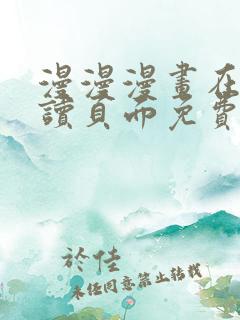 漫漫漫畫在
讀頁面免費
於佳
未经同意禁止转载